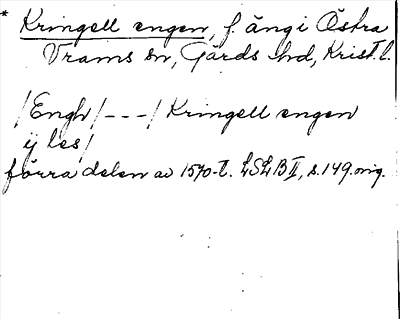 * Kringell engen, f. äng i Östra
Vrams sn, Gärds hd, Krist. l.
/Engh/---/Kringell engen
ij les/
förra delen av 1570-t. LSLB II, s. 149. orig.